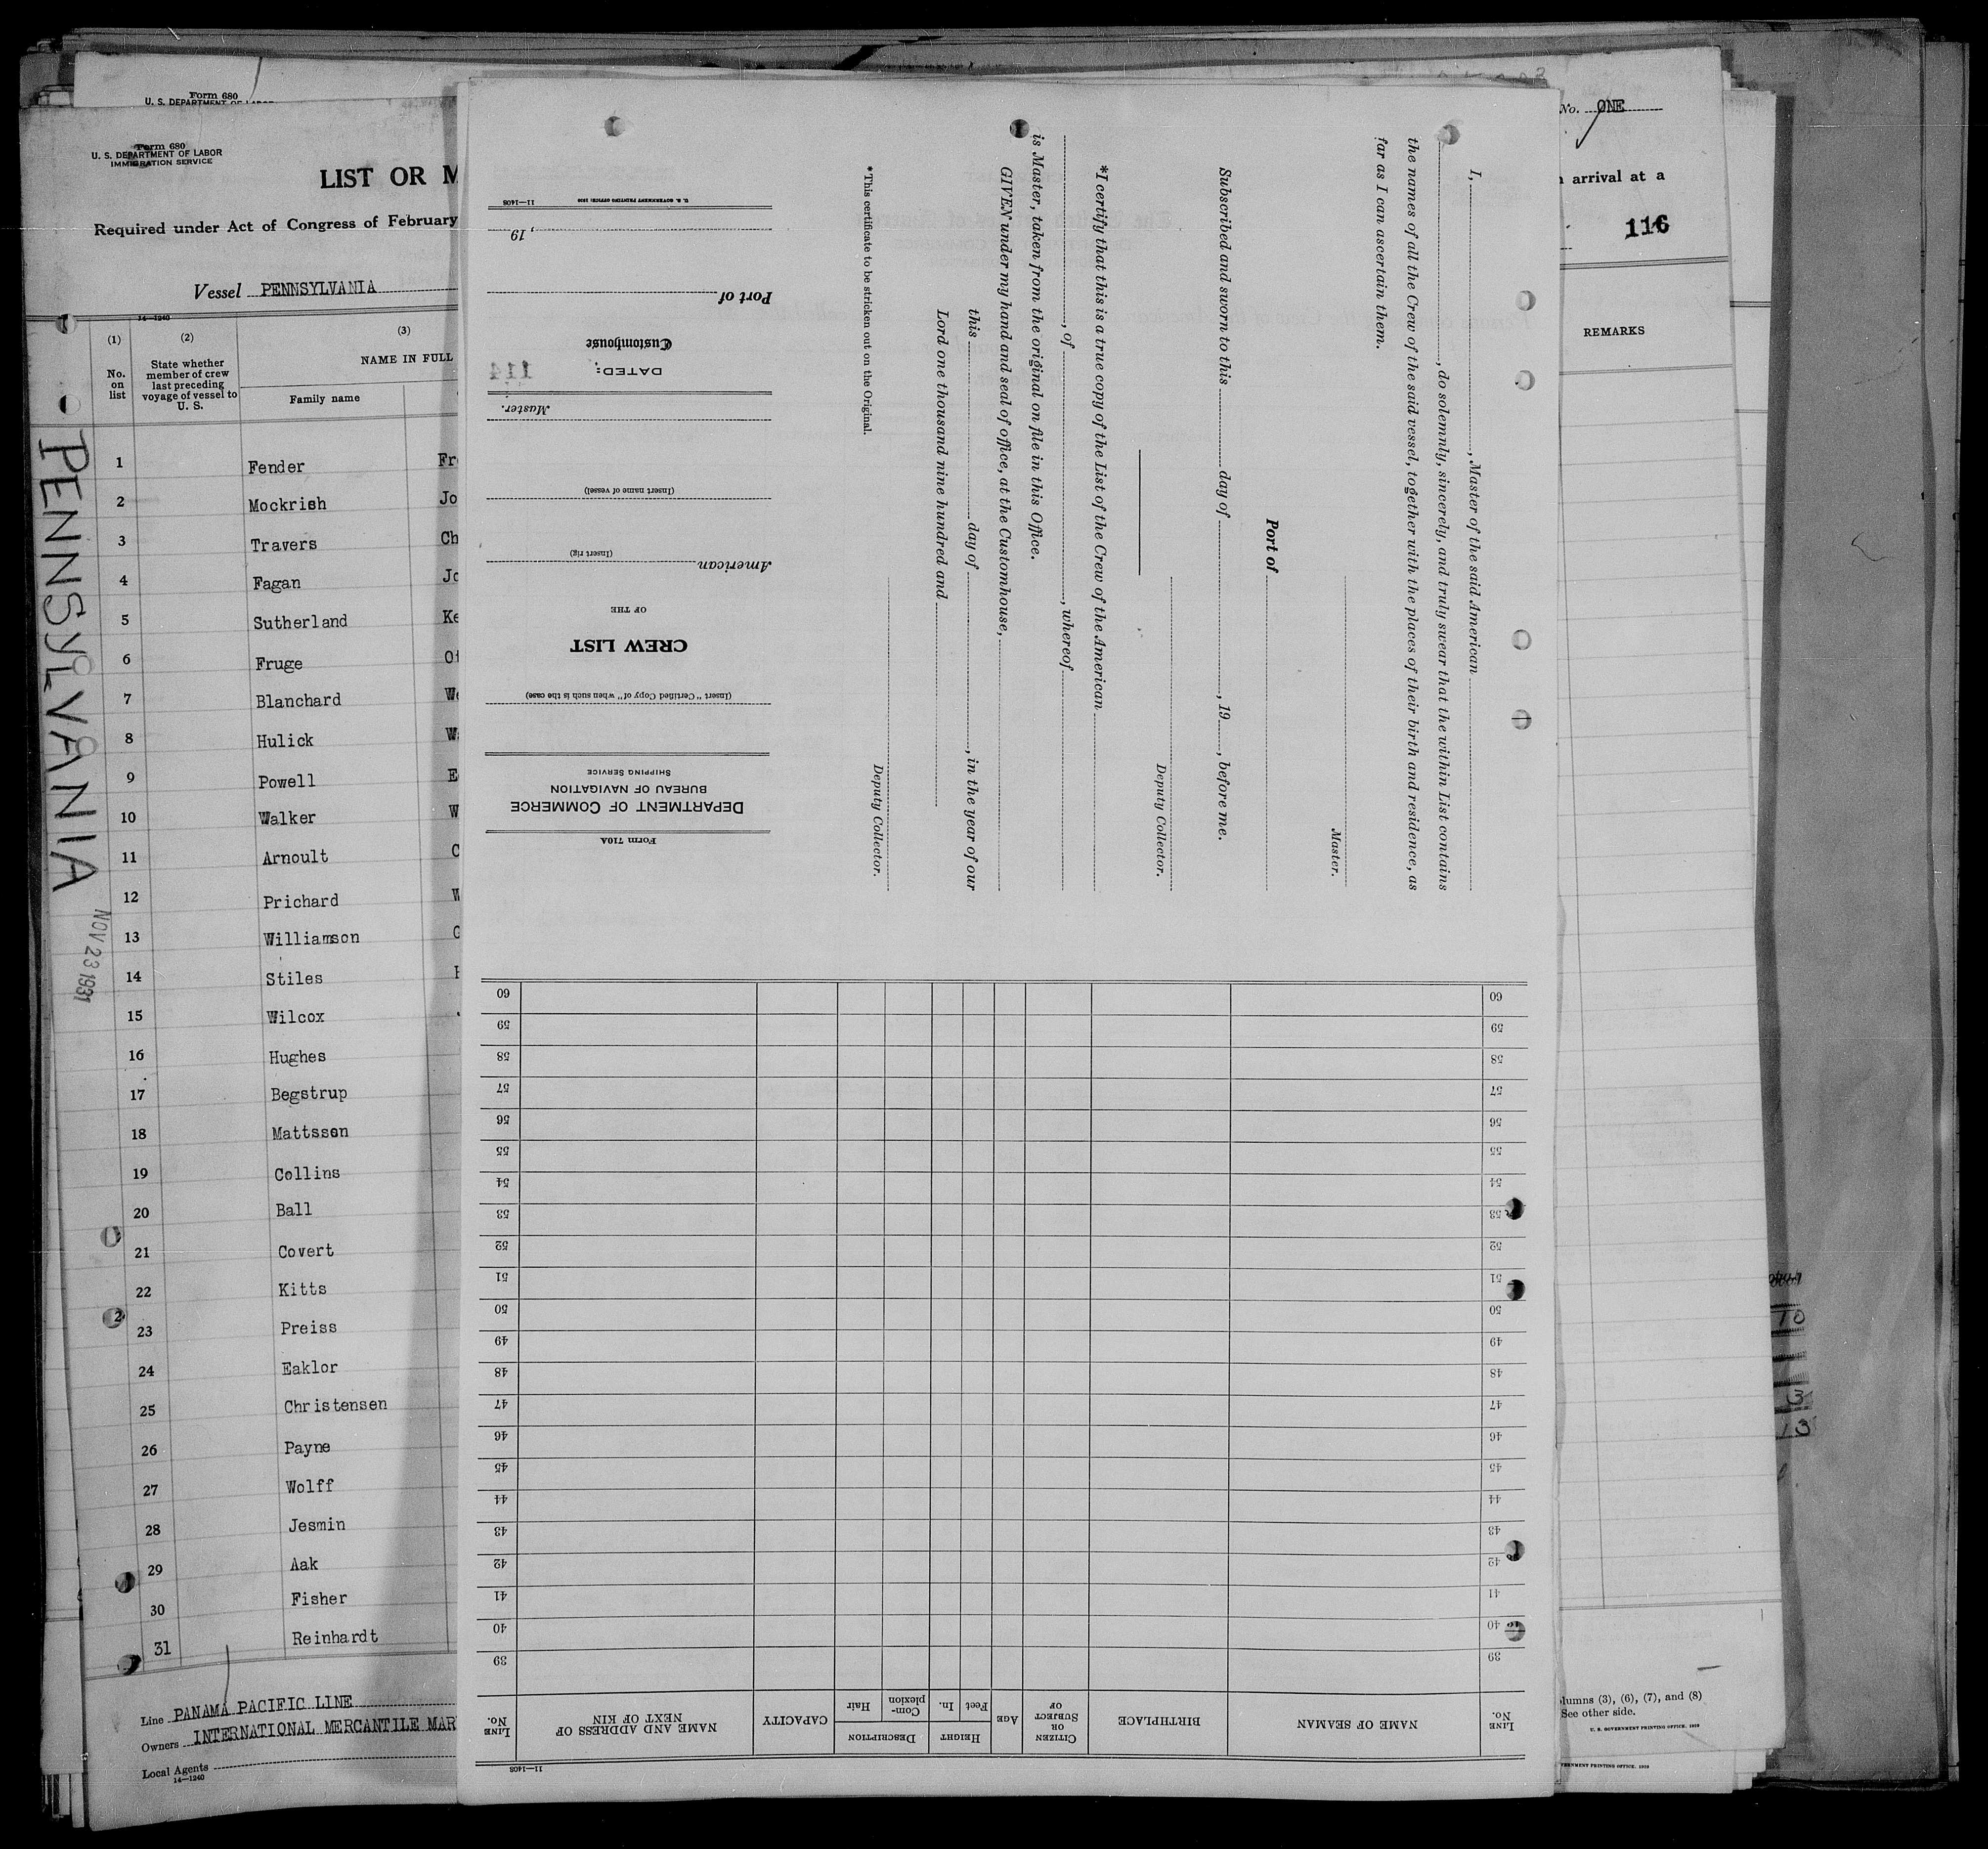 Form 680
U. S. DEPARTMENT OF
Form 680
U. S. DEPARTMENT OF LABOR
IMMIGRATION SERVICE
LIST OR M
Required under Act of Congress of February
Vessel PENNSYLVANIA
14—1240
(1)
(2)
(3)
No.
on
list
State whether
member of crew
last preceding
voyage of vessel to
U. S.
NAME IN FULL
Family name
1 Fender Fr
2 Mockrish Jo
3 Travers Ch
4 Fagan Jo
5 Sutherland Ke
6 Fruge Ot
7 Blanchard We
8 Hulick Wa
9 Powell E
10 Walker W
11 Arnoult C
12 Prichard W
13 Williamson G
14 Stiles H
15 Wilcox
16 Hughes
17 Begstrup
18 Mattsson
19 Collins
20 Ball
21 Covert
22 Kitts
23 Preiss
24 Eaklor
25 Christensen
26 Payne
27 Wolff
28 Jesmin
29 Aak
30 Fisher
31 Reinhardt
Line PANAMA PACIFIC LINE
Owners INTERNATIONAL MERCANTILE MAR
Local Agents
14—1240
PENNSYLVANIA
NOV 23 1931
I, , Master of the said American
, do solemnly, sincerely, and truly swear that the within List contains
the names of all the Crew of the said vessel, together with the places of their birth and residence, as
far as I can ascertain them.
Master.
Port of
Subscribed and sworn to this day of , 19 , before me.
Deputy Collector.
*I certify that this is a true copy of the List of the Crew of the American
, of , whereof
is Master, taken from the original on file in this Office.
GIVEN under my hand and seal of office, at the Customhouse,
this day of , in the year of our
Lord one thousand nine hundred and
Deputy Collector.
*This certificate to be stricken out on the Original.
Form 710A
DEPARTMENT OF COMMERCE
BUREAU OF NAVIGATION
SHIPPING SERVICE
(Insert "Certified Copy of" when such is the case)
CREW LIST
OF THE
American
(Insert rig)
(Insert name of vessel)
Master.
DATED:
114
Customhouse
Port of
, 19
11—1408
U. S. GOVERNMENT PRINTING OFFICE: 1930
11—1408
LINE
No.
NAME OF SEAMAN
BIRTHPLACE
CITIZEN
OR
SUBJECT
OF
AGE
HEIGHT
Feet
In.
DESCRIPTION
Com-
plexion
Hair
CAPACITY
NAME AND ADDRESS OF
NEXT OF KIN
LINE
No.
39 39
40 40
41 41
42 42
43 43
44 44
45 45
46 46
47 47
48 48
49 49
50 50
51 51
52 52
53 53
54 54
55 55
56 56
57 57
58 58
59 59
60 60
No. ONE
arrival at a
116
REMARKS
10
3
13
lumns (3), (6), (7), and (8)
See other side.
U. S. GOVERNMENT PRINTING OFFICE. 1929
VERNMENT PRINTING OFFICE. 1929